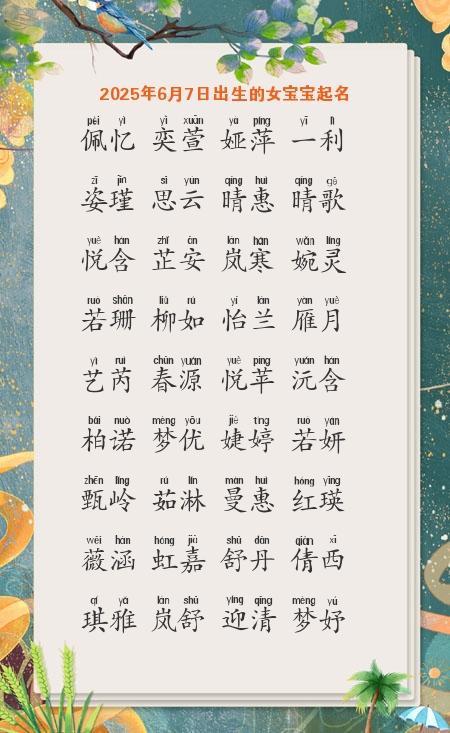 2025年6月7日出生的女宝宝起名
pèi yì yì xuān yà píng yī lì
佩忆 奕萱 娅萍 一利
zī jǐn sī yún qíng huì qíng gē
姿瑾 思云 晴惠 晴歌
yuè hán zhǐ ān lán hán wǎn líng
悦含 芷安 岚寒 婉灵
ruò shān liǔ rú yí lán yàn yuè
若珊 柳如 怡兰 雁月
yì ruì chūn yuán yuè píng yuán hán
艺芮 春源 悦苹 沅含
bǎi nuò mèng yōu jié tíng ruò yán
柏诺 梦优 婕婷 若妍
zhēn lǐng rú lín màn huì hóng yīng
甄岭 茹淋 曼惠 红瑛
wēi hán hóng jiā shū dān qiàn xī
薇涵 虹嘉 舒丹 倩西
qí yǎ lán shū yíng qīng mèng yú
琪雅 岚舒 迎清 梦妤